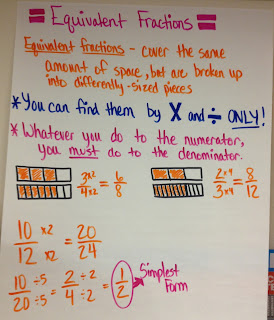 = Equivalent Fractions =
Equivalent fractions - cover the same
amount of space, but are broken up
into differently-sized pieces
*You can find them by X and ÷ ONLY!
*Whatever you do to the numerator,
you must do to the denominator.
3x2/4x2 = 6/8
2x4/3x4 = 8/12
10x2/12x2 = 20/24
10÷5/20÷5 = 2÷2/4÷2 = 1/2 Simplest
Form